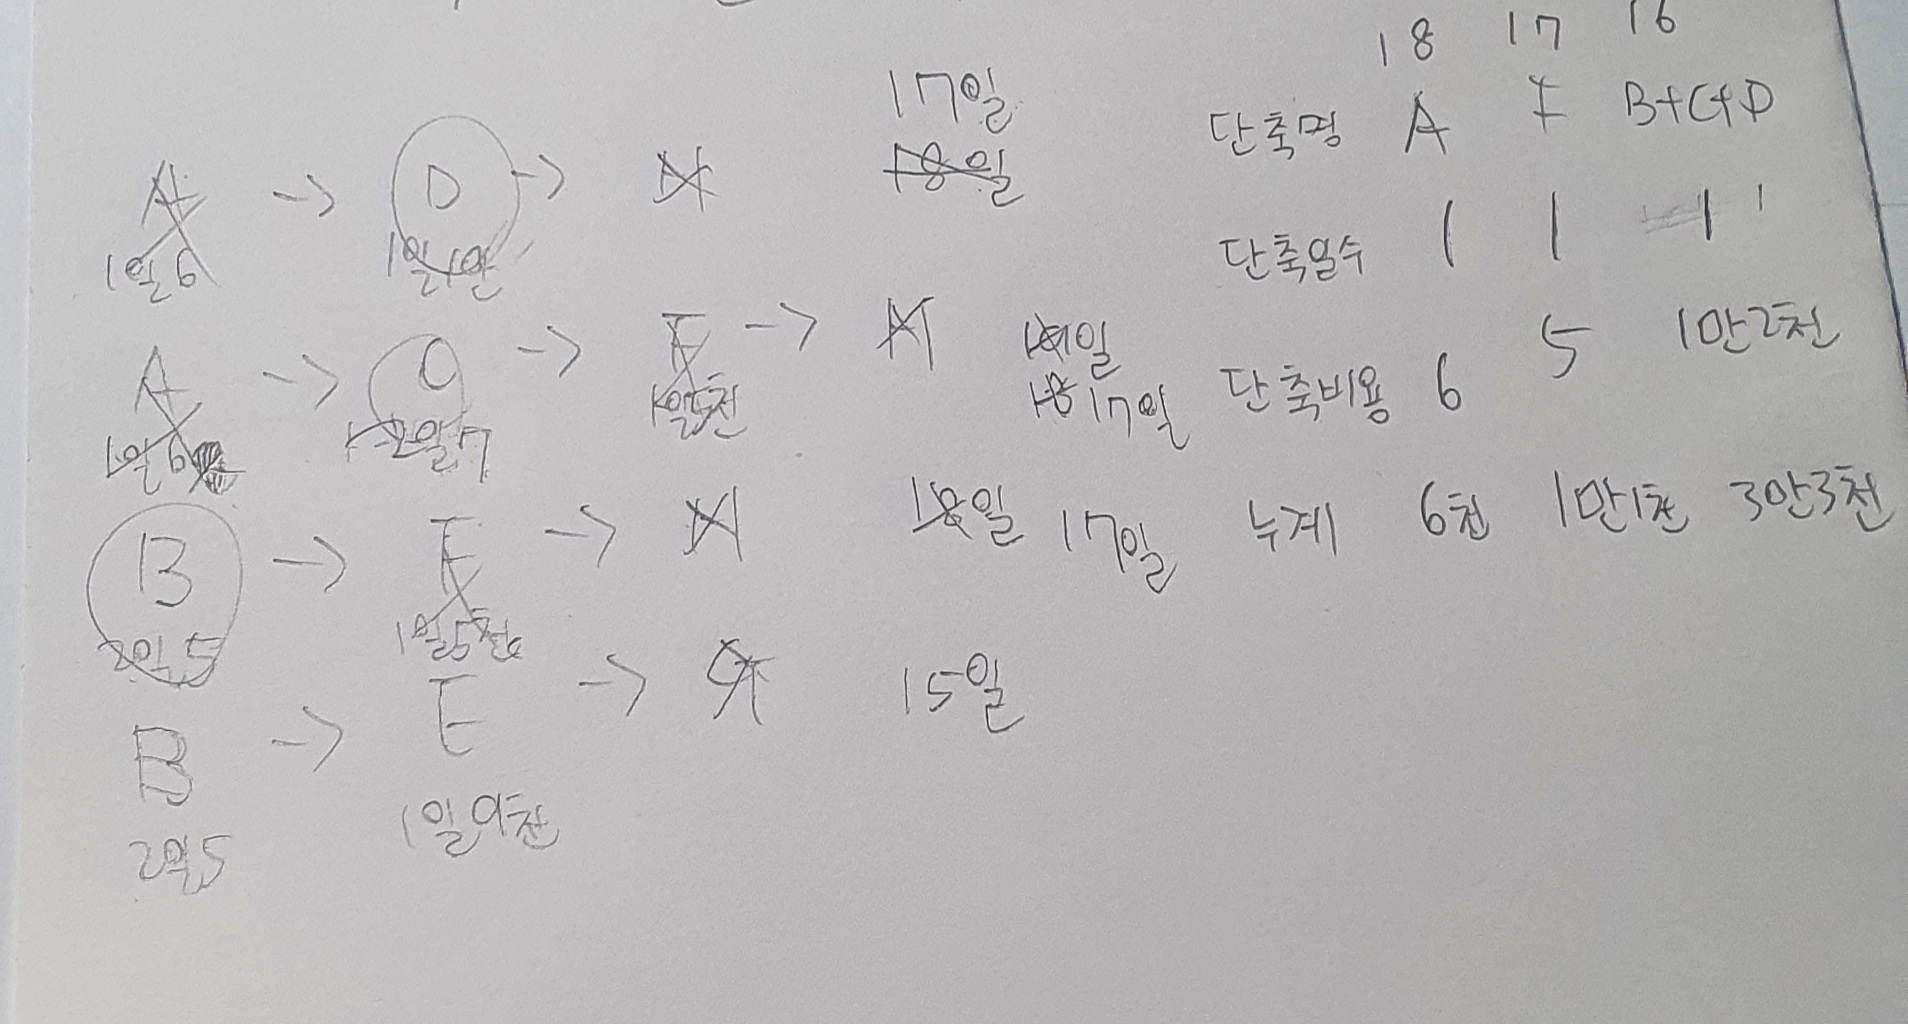 18 17 16
단축명 A F B+C+D
단축일수 1 1 1 1
단축비용 6 5 1만2천
누계 6천 1만1천 3만3천
17일
A -> D -> 18일
1일6 1일1만
A -> C -> F -> 일
1일6 2일7 1일5천 18 17일
B -> F -> 18일 17일
2일5 1일5천
B -> E -> 15일
2일5 1일9천